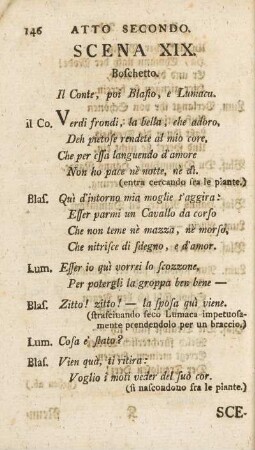 146 ATTO SECONDO.
SCENA XIX.
Boschetto.
Il Conte, poi Blasio, e Lumaca.
il Co. Verdi frondi, la bella, che adoro,
Deh pietose rendete al mio core,
Che per essa languendo d'amore
Non ho pace nè notte, nè dì.
(entra cercando fra le piante.)
Blas. Quì d'intorno mia moglie s'aggira:
Esser parmi un Cavallo da corso
Che non teme nè mazza, nè morso,
Che nitrisce di sdegno, e d'amor.
Lum. Esser io quì vorrei lo scozzone,
Per potergli la groppa ben bene —
Blas. Zitto! zitto! — la sposa quà viene.
(strascinando seco Lumaca impetuosa-
mente prendendolo per un braccio.)
Lum. Cosa è stato?
Blas. Vien quà, ti ritira:
Voglio i moti veder del suo cor.
(si nascondono fra le piante.)
SCE-